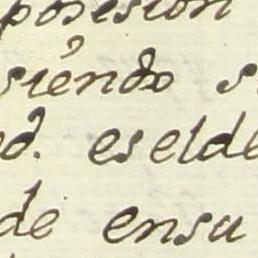 posesion
siéndo s
d. es elde
de ensu